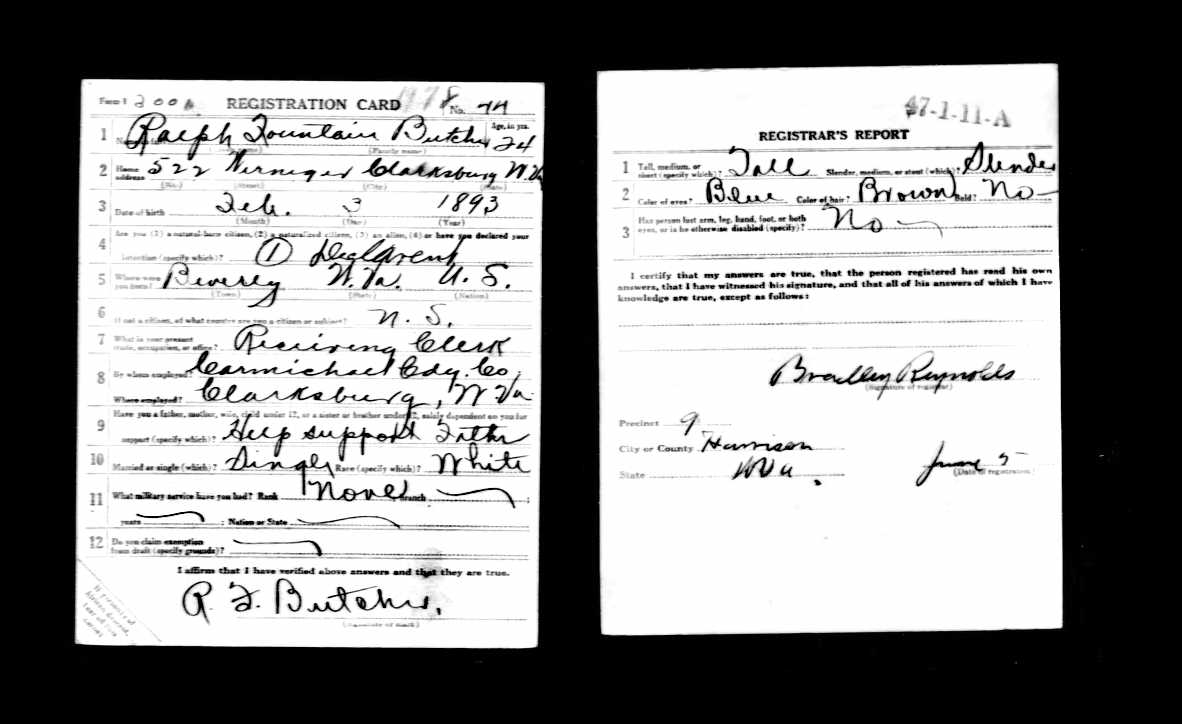 Form 1 200 REGISTRATION CARD 1978 No. 74
1 Ralph Fountain Butcher Age, in yrs. 24
(Family name)
2 Home address 522 Clarksburg W.Va
(No.) (Street) (City) (State)
3 Date of birth Feb. 3 1893
(Month) (Day) (Year)
4 Are you (1) a natural-born citizen, (2) a naturalized citizen, (3) an alien, (4) or have you declared your
intention (specify which)? ①
5 Where were you born? Beverly W.Va. U.S.
(Town) (State) (Nation)
6 If not a citizen, of what country are you a citizen or subject? U.S.
7 What is your present trade, occupation, or office? Receiving Clerk
8 By whom employed? Carmichael Cdy. Co.
Where employed? Clarksburg, W Va
9 Have you a father, mother, wife, child under 12, or a sister or brother under 12, solely dependent on you for
support (specify which)? Help support Father
10 Married or single (which)? Single Race (specify which)? White
11 What military service have you had? Rank None Branch ;
years ; Nation or State
12 Do you claim exemption from draft (specify grounds)?
I affirm that I have verified above answers and that they are true.
R. F. Butcher.
(Signature or mark)
If person is of African descent, tear off this corner
47-1-11-A
REGISTRAR'S REPORT
1 Tall, medium, or short (specify which)? Tall Slender, medium, or stout (which)? Slender
2 Color of eyes? Blue Color of hair? Brown Bald? No
3 Has person lost arm, leg, hand, foot, or both eyes, or is he otherwise disabled (specify)? No
I certify that my answers are true, that the person registered has read his own
answers, that I have witnessed his signature, and that all of his answers of which I have
knowledge are true, except as follows:
Bradley Reynolds
(Signature of registrar)
Precinct 9
City or County Harrison
State W Va. June 5
(Date of registration)